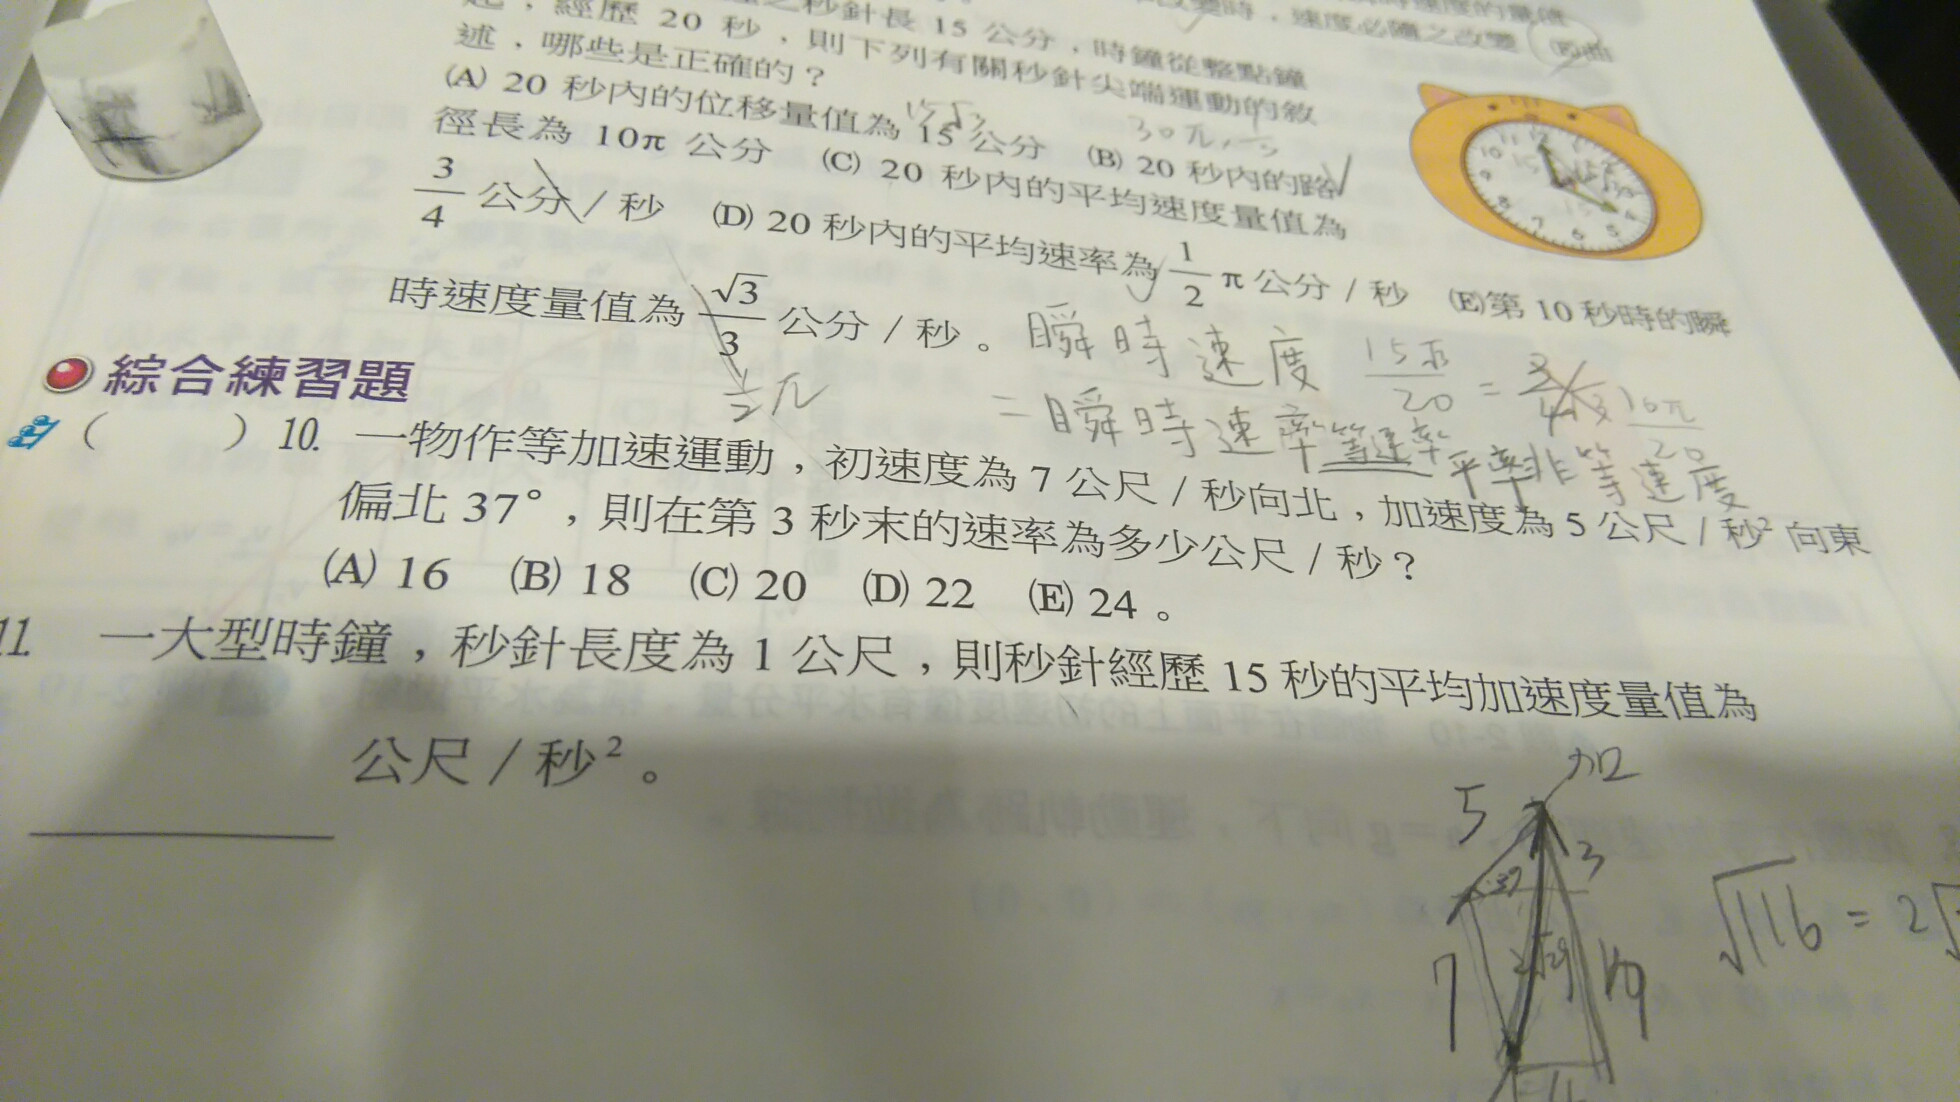 秒針長 15 公分，時鐘從整點鐘
經歷 20 秒，則下列有關秒針尖端運動的敘
述，哪些是正確的？
(A) 20 秒內的位移量值為 15 公分 (B) 20 秒內的路
15√3
30π
徑長為 10π 公分 (C) 20 秒內的平均速度量值為
3/4 公分／秒 (D) 20 秒內的平均速率為 1/2 π 公分／秒 (E)第 10 秒時的瞬
時速度量值為 √3/3 公分／秒。
1/2 π
瞬時速度
=瞬時速率
等速率
非等速度
15√3/20 = 3/4 √3
10π/20
綜合練習題
( ) 10. 一物作等加速運動，初速度為 7 公尺／秒向北，加速度為 5 公尺／秒² 向東
偏北 37°，則在第 3 秒末的速率為多少公尺／秒？
(A) 16 (B) 18 (C) 20 (D) 22 (E) 24。
11. 一大型時鐘，秒針長度為 1 公尺，則秒針經歷 15 秒的平均加速度量值為
公尺／秒²。
加
5
3
37
7
2√29
10
4
√116 = 2√